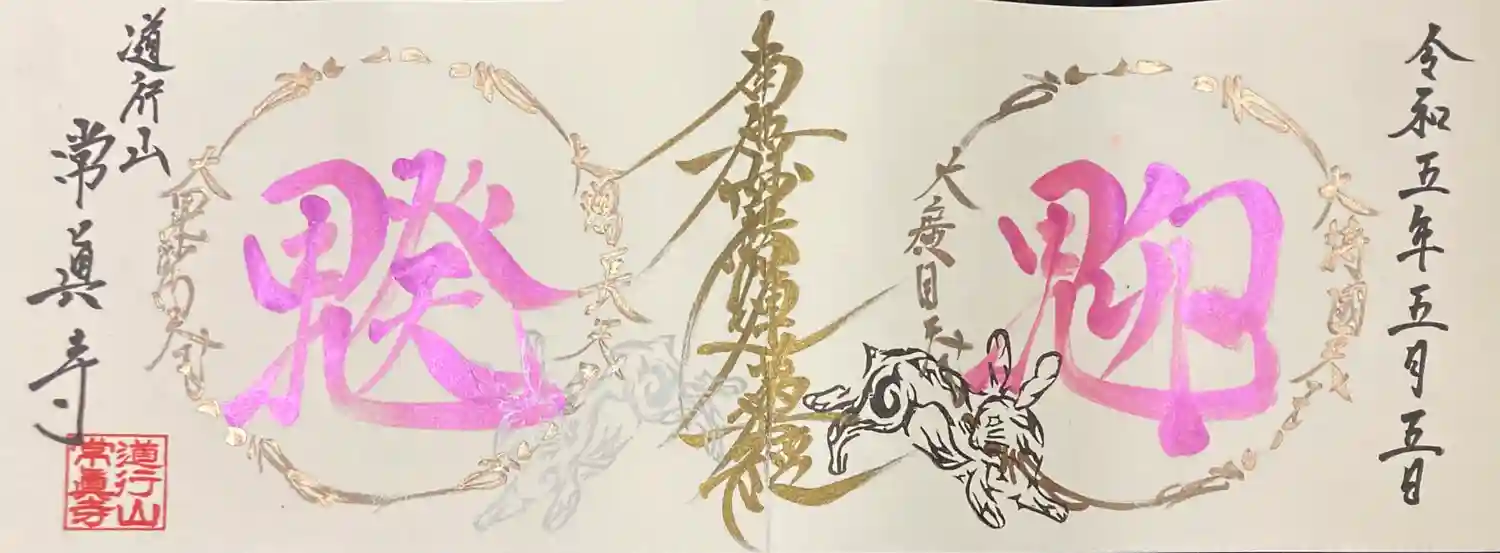 令和五年五月五日
大持國天王
大廣目天王
南無妙法蓮華經
大增長天王
大毘沙門天王
道行山
常眞寺
道行山
常眞寺